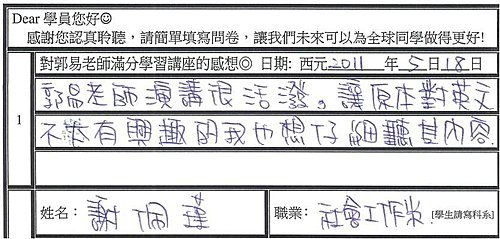 Dear 學員您好☺
感謝您認真聆聽，請簡單填寫問卷，讓我們未來可以為全球同學做得更好!
對郭易老師滿分學習講座的感想◎ 日期: 西元2011 年 5 日 18 日
1
郭易老師演講很活潑。讓原本對英文
不太有興趣的我也想仔細聽其內容.
姓名: 謝佩瑾
職業: 社會工作系 [學生請寫科系]